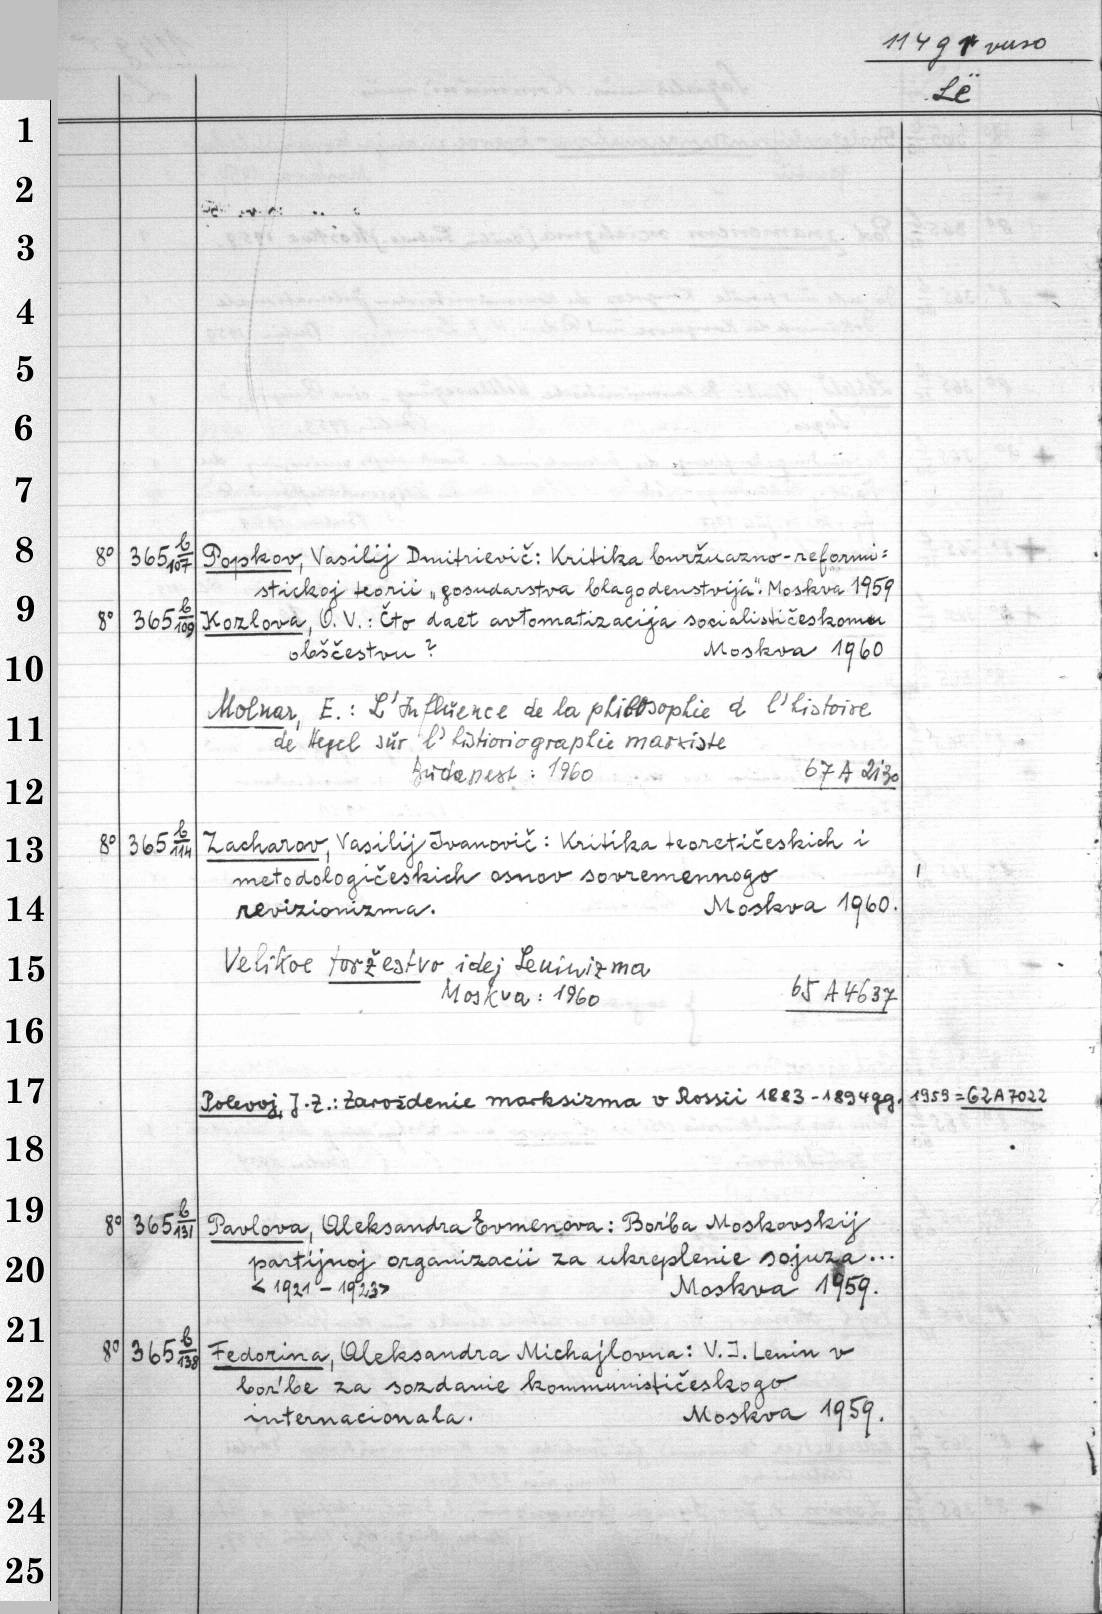 1149 r verso
Lë
1
2
3
4
5
6
7
8 8° 365 b/107 Popkov, Vasilij Dmitrievič: Kritika buržuazno-reformi=
stickoj teorii „gosudarstva blagodenstvija“. Moskva 1959
9 8° 365 b/109 Kozlova, O. V.: Čto daet avtomatizacija socialističeskomu
10 obščestvu? Moskva 1960
11 Molnar, E.: L'Influence de la philosophie d l'histoire
de Hegel sur l'historiographie marxiste
12 Budapest: 1960 67 A 2130
13 8° 365 b/114 Zacharov, Vasilij Ivanovič: Kritika teoretičeskich i
metodologičeskich osnov sovremennogo
14 revizionizma. Moskva 1960.
15 Velikoe toržestvo idej Leninizma
Moskva: 1960 65 A 4637
16
17 Polevoj, J. Z.: Zaroždenie marksizma v Rossii 1883-1894gg. 1959 = 62A7022
18
19 8° 365 b/131 Pavlova, Aleksandra Evmenova: Bor'ba Moskovskij
20 partijnoj organizacii za ukreplenie sojuza...
<1921-1923> Moskva 1959.
21 8° 365 b/138 Fedorina, Aleksandra Michajlovna: V. I. Lenin v
22 bor'be za sozdanie kommunističeskogo
internacionala. Moskva 1959.
23
24
25